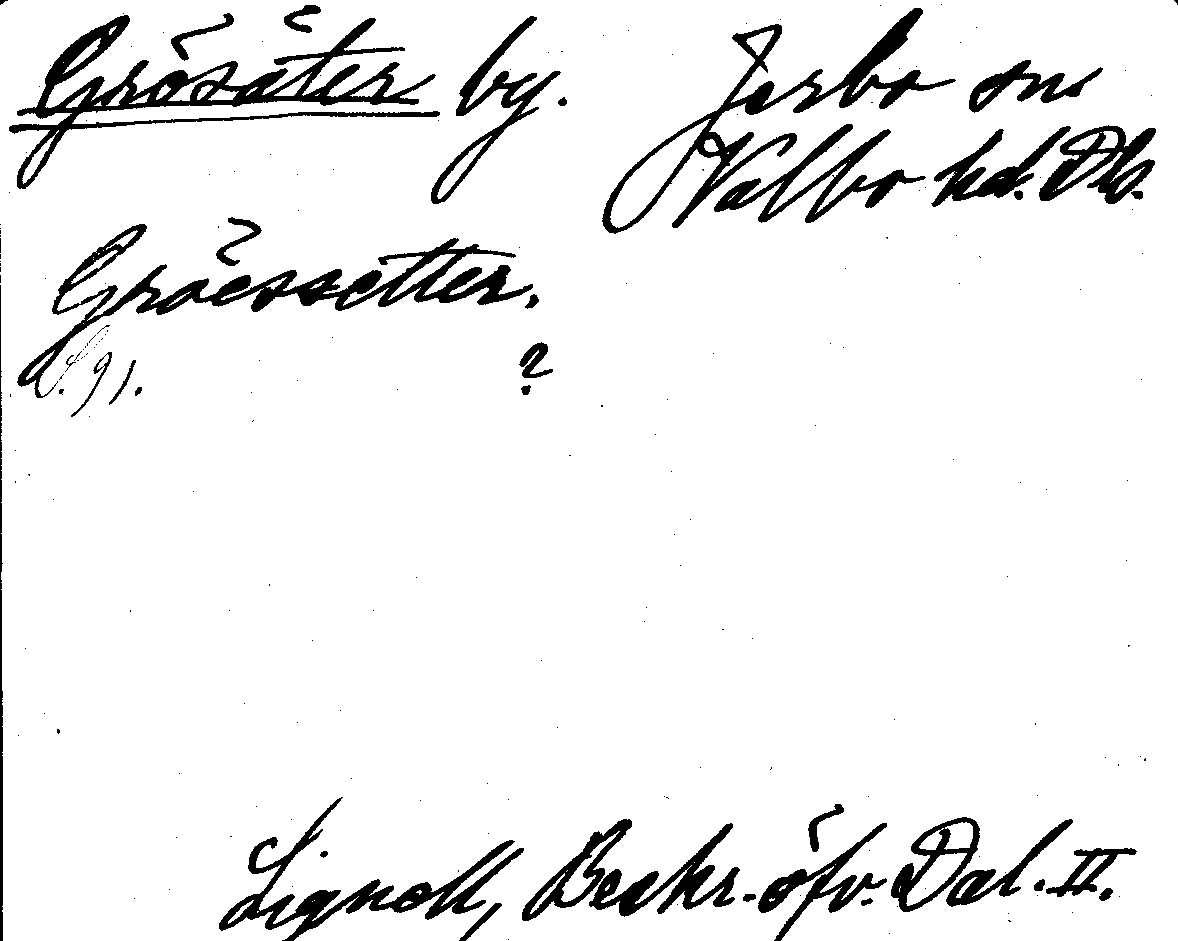 Grösäter by. Jerbo sn.
Valbo hd. Dls.
Gröessetter.
S. 91. ?
Lignell, Beskr. öfv. Dal. II.